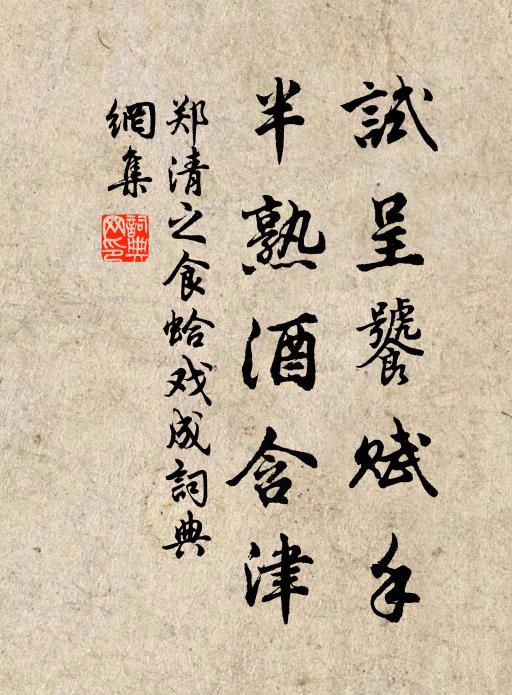 試呈饕赋手
半熟酒含津
郑清之食蛤戏成詞典
網集
詞典網印